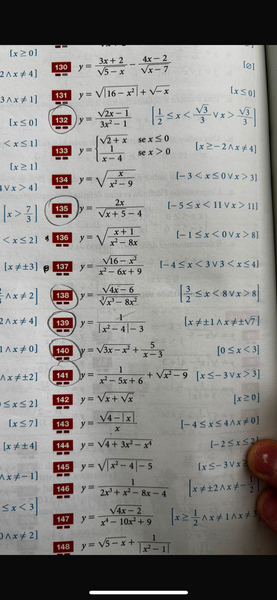 [x≥0]
130 y = (3x + 2)/√(5 − x) − (4x − 2)/√(x − 7) [∅]
2∧x≠4]
131 y = √|16 − x²| + √−x [x≤0]
3∧x≠1]
132 y = √(2x−1)/(3x² − 1) [1/2 ≤ x < √3/3 ∨ x > √3/3]
[x≤0]
<x≤1]
133 y = { √(2 + x) se x≤0
1/(x − 4) se x>0 [x≥−2∧x≠4]
[x≥1]
134 y = √(x/(x² − 9)) [−3<x≤0∨x>3]
∨x>4]
135 y = 2x/(√(x + 5) − 4) [−5≤x<11∨x>11]
[x > 7/3]
136 y = √((x + 1)/(x² − 8x)) [−1≤x<0∨x>8]
<x≤2]
137 y = √(16 − x²)/(x² − 6x + 9) [−4≤x<3∨3<x≤4]
[x≠±3]
138 y = √(4x − 6)/∛(x³ − 8x²) [3/2 ≤x<8∨x>8]
∧x≠2]
139 y = 1/(|x² − 4| − 3) [x≠±1∧x≠±√7]
2∧x≠4]
140 y = √(3x − x²) + 5/(x − 3) [0≤x<3]
1∧x≠0]
141 y = 1/(x² − 5x + 6) + √(x² − 9) [x≤−3∨x>3]
∧x≠±2]
142 y = √x + √x [x≥0]
0≤x≤2]
143 y = √(4 − |x|)/x [−4≤x≤4∧x≠0]
[x≤7]
144 y = √(4 + 3x² − x⁴) [−2≤x≤
[x≠±4]
145 y = √(|x² − 4| − 5) [x≤−3∨x≥
146 y = 1/(2x³ + x² − 8x − 4) [x≠±2∧x≠−1/2]
∧x≠−1]
147 y = √(4x − 2)/(x⁴ − 10x² + 9) [x≥1/2∧x≠1∧x≠
≤x<3]
148 y = √(5 − x) + 1/|x² − 1|
0∧x≠2]